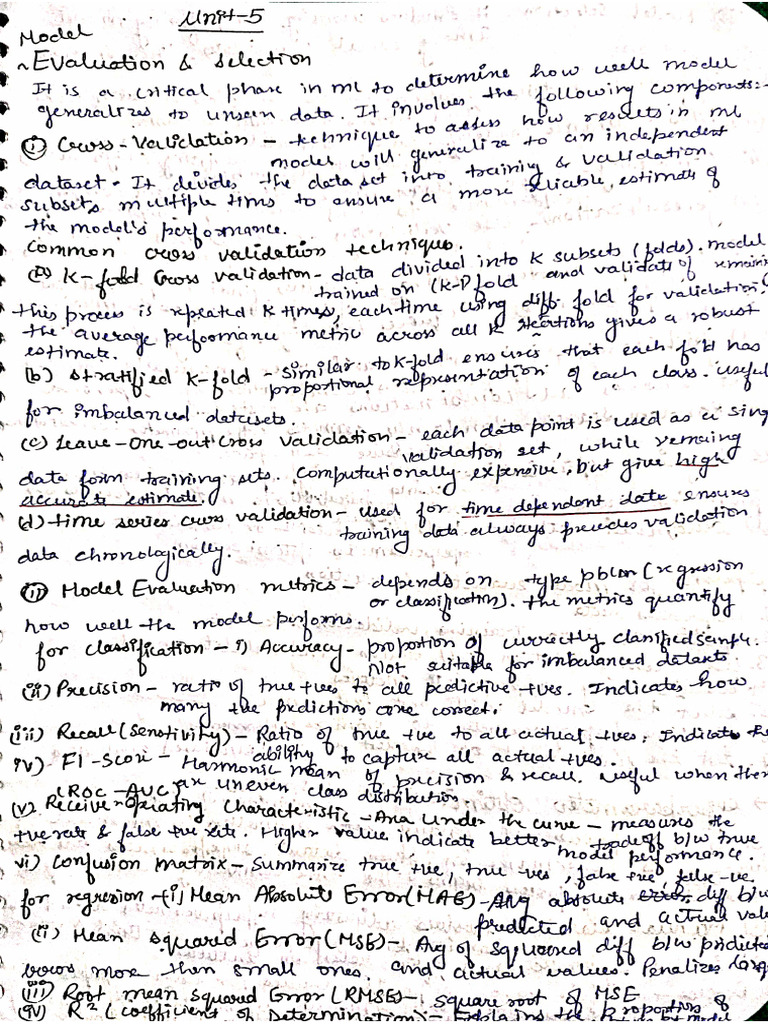 Unit-5
Model
Evaluation & selection
It is a critical phase in ml to determine how well model
generalizes to unseen data. It involves the following components:-
(i) Cross-Validation - technique to assess how results in ml
model will generalize to an independent
dataset. It divides the data set into training & validation
subsets multiple tims to ensure a more reliable estimate of
the model's performance.
Common cross validation techniques.
(a) K-fold Cross validation - data divided into K subsets (folds). model
trained on (K-1) fold and validate of remain
this process is repeated K times, each time using diff fold for validation.
the average performance metric across all K iterations gives a robust
estimate.
(b) Stratified K-fold - Similar to K-fold ensures that each fold has
proportional representation of each class. useful
for imbalanced datasets.
(c) Leave-One-out Cross Validation - each data point is used as a sing
validation set, while remaing
data form training sets. Computationally expensive, but give high
accurate estimate.
(d) time series cross validation - used for time dependent data ensures
training data always precides validation
data chronologically.
(ii) Model Evaluation metrics - depends on type pblm (regression
or classification). the metrics quantify
how well the model performs.
for classification - i) Accuracy - proportion of currectly classified sample.
Not suitable for imbalanced datasets.
(ii) Precision - ratio of true +ves to all predictive +ves. Indicates how
many +ve predictions are correct.
(iii) Recall (Sensitivity) - Ratio of true +ve to all actual +ves. Indicate
ability to capture all actual +ves.
iv) - F1-Score - Harmonic mean of precision & recall. Useful when ther
are uneven class distribution
(ROC-AUC)
(v) Receiver Opiating Characteristic - Area Under the curve - measures the
tradeoff b/w true
+ve rate & false +ve rate. Higher value indicate better model performance.
vi) Confusion matrix - Summarize true +ve, true -ves, false +ve, false -ve.
for regresion - (i) Mean Absolute Error (MAE) - Avg absolute diff b/w
predicted and actual val
(ii) Mean squared Error (MSE) - Avg of squared diff b/w predicte
and actual values. Penalizes larg
errors more then small ones.
(iii) Root mean squared Error (RMSE) - square root of MSE
(iv) R² (coefficient of Determination) - Explains the proportion of